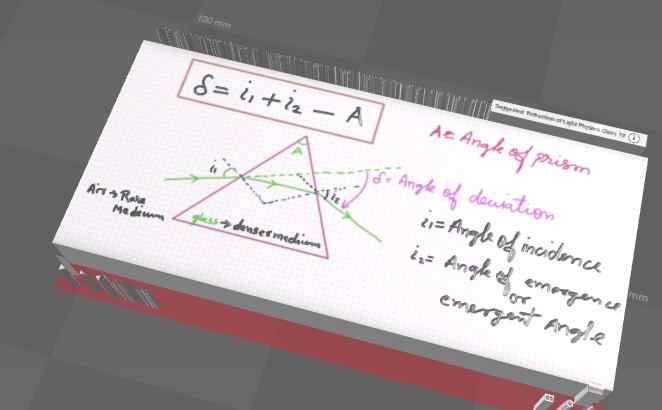 100 mm
δ = i₁ + i₂ − A
Suggested: Refraction of Light Physics Class 12
A = Angle of prism
A
i₁
δ = Angle of deviation
i₂
Air → Rare
Medium
glass → denser medium
i₁ = Angle of incidence
i₂ = Angle of emergence
or
emergent Angle
mm